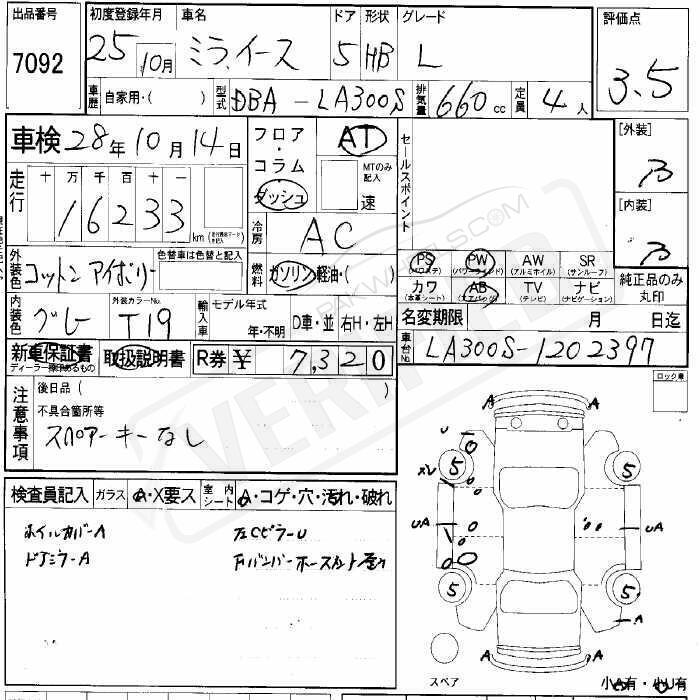 出品番号 初度登録年月 車名 ドア 形状 グレード 評価点
7092 25 10月 ミラ,イース 5 HB L 3.5
車歴 自家用・( ) 型式 DBA-LA300S 排気量 660 cc 定員 4人
車検 28年10月14日 フロア・コラム ダッシュ AT MTのみ記入 速 セールスポイント [外装]
走行 十 万 千 百 十 一
16233 km
冷房 AC [内装]
外装色 コットンアイボリー 色替車は色替と記入 燃料 ガソリン 軽油・( )
PS (パワステ) PW (パワーウィンド) AW (アルミホイル) SR (サンルーフ)
カワ (本革シート) AB (エアバッグ) TV (テレビ) ナビ (ナビゲーション) 純正品のみ丸印
内装色 グレー 外装カラーNo. T19 輸入車 モデル年式 年・不明 D車・並 右H・左H 名変期限 月 日迄
新車保証書 ディーラー捺印あるもの 取扱説明書 R券 ¥ 7,320 車台No. LA300S-1202397
注意事項 後日品( ) ロック車
不具合箇所等
スペアーキーなし
検査員記入 ガラス A・X要ス 室内シート A・コゲ・穴・汚れ・破れ
ホイルカバーA 左CピラーU
ドアミラーA
A A
U
XU 5 5
UA UA
5 5
A
A A
スペア 小A有・小U有
PAKWHEELS.COM
VERIFIED